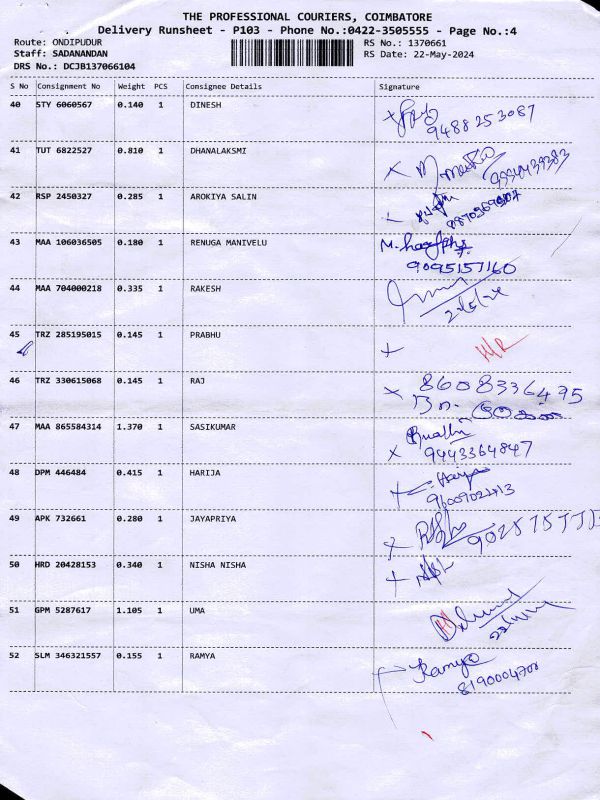 THE PROFESSIONAL COURIERS, COIMBATORE
Delivery Runsheet - P103 - Phone No.:0422-3505555 - Page No.:4
Route: ONDIPUDUR RS No.: 1370661
Staff: SADANANDAN RS Date: 22-May-2024
DRS No.: DCJB137066104
S No Consignment No Weight PCS Consignee Details Signature
40 STY 6060567 0.140 1 DINESH
9488253087
41 TUT 6822527 0.810 1 DHANALAKSMI
42 RSP 2450327 0.285 1 AROKIYA SALIN
43 MAA 106036505 0.180 1 RENUGA MANIVELU
9095157160
44 MAA 704000218 0.335 1 RAKESH
45 TRZ 285195015 0.145 1 PRABHU
46 TRZ 330615068 0.145 1 RAJ
8608336495
47 MAA 865584314 1.370 1 SASIKUMAR
9443364847
48 DPM 446484 0.415 1 HARIJA
49 APK 732661 0.280 1 JAYAPRIYA
50 HRD 20428153 0.340 1 NISHA NISHA
51 GPM 5287617 1.105 1 UMA
52 SLM 346321557 0.155 1 RAMYA
Ramya
8190004708